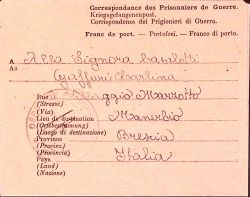 Correspondance des Prisonniers de Guerre.
Kriegsgefangenenpost.
Corrispondenza dei Prigionieri di Guerra.
Franc de port. - Portofrei. - Franco di porto.
A Alla Signora
An
A
Rue Villaggio Marzotto
(Strasse)
(Via)
Lieu de destination Manerbio
(Ortsbestimmung)
(Luogo di destinazione)
Province Brescia
(Provinz)
(Provincia)
Pays Italia
(Land)
(Nazione)